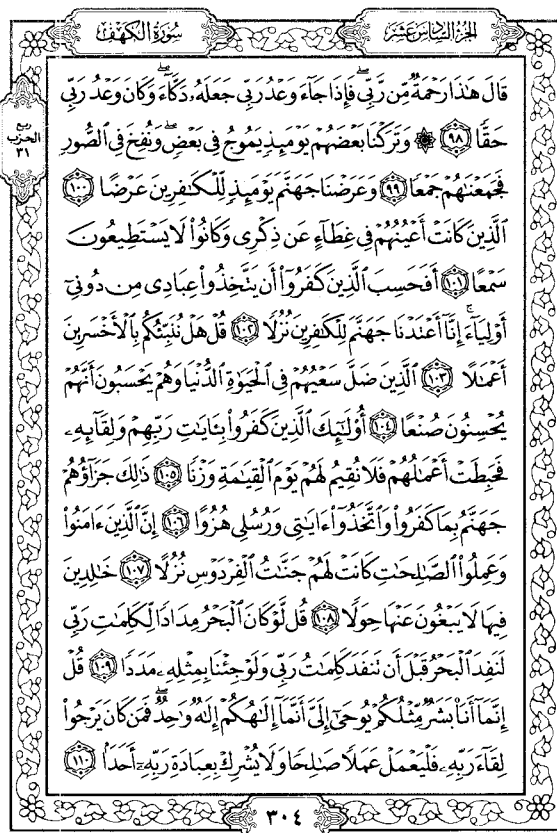 الجزء السادس عشر
سورة الكهف
قَالَ هَٰذَا رَحْمَةٌ مِّن رَّبِّى ۖ فَإِذَا جَآءَ وَعْدُ رَبِّى جَعَلَهُۥ دَكَّآءَ ۖ وَكَانَ وَعْدُ رَبِّى
حَقًّا ٩٨ ۞ وَتَرَكْنَا بَعْضَهُمْ يَوْمَئِذٍ يَمُوجُ فِى بَعْضٍ ۖ وَنُفِخَ فِى ٱلصُّورِ
ربع
الحزب
٣١
فَجَمَعْنَٰهُمْ جَمْعًا ٩٩ وَعَرَضْنَا جَهَنَّمَ يَوْمَئِذٍ لِّلْكَٰفِرِينَ عَرْضًا ١٠٠
ٱلَّذِينَ كَانَتْ أَعْيُنُهُمْ فِى غِطَآءٍ عَن ذِكْرِى وَكَانُوا۟ لَا يَسْتَطِيعُونَ
سَمْعًا ١٠١ أَفَحَسِبَ ٱلَّذِينَ كَفَرُوٓا۟ أَن يَتَّخِذُوا۟ عِبَادِى مِن دُونِىٓ
أَوْلِيَآءَ ۚ إِنَّآ أَعْتَدْنَا جَهَنَّمَ لِلْكَٰفِرِينَ نُزُلًا ١٠٢ قُلْ هَلْ نُنَبِّئُكُم بِٱلْأَخْسَرِينَ
أَعْمَٰلًا ١٠٣ ٱلَّذِينَ ضَلَّ سَعْيُهُمْ فِى ٱلْحَيَوٰةِ ٱلدُّنْيَا وَهُمْ يَحْسَبُونَ أَنَّهُمْ
يُحْسِنُونَ صُنْعًا ١٠٤ أُو۟لَٰٓئِكَ ٱلَّذِينَ كَفَرُوا۟ بِـَٔايَٰتِ رَبِّهِمْ وَلِقَآئِهِۦ
فَحَبِطَتْ أَعْمَٰلُهُمْ فَلَا نُقِيمُ لَهُمْ يَوْمَ ٱلْقِيَٰمَةِ وَزْنًا ١٠٥ ذَٰلِكَ جَزَآؤُهُمْ
جَهَنَّمُ بِمَا كَفَرُوا۟ وَٱتَّخَذُوٓا۟ ءَايَٰتِى وَرُسُلِى هُزُوًا ١٠٦ إِنَّ ٱلَّذِينَ ءَامَنُوا۟
وَعَمِلُوا۟ ٱلصَّٰلِحَٰتِ كَانَتْ لَهُمْ جَنَّٰتُ ٱلْفِرْدَوْسِ نُزُلًا ١٠٧ خَٰلِدِينَ
فِيهَا لَا يَبْغُونَ عَنْهَا حِوَلًا ١٠٨ قُل لَّوْ كَانَ ٱلْبَحْرُ مِدَادًا لِّكَلِمَٰتِ رَبِّى
لَنَفِدَ ٱلْبَحْرُ قَبْلَ أَن تَنفَدَ كَلِمَٰتُ رَبِّى وَلَوْ جِئْنَا بِمِثْلِهِۦ مَدَدًا ١٠٩ قُلْ
إِنَّمَآ أَنَا۠ بَشَرٌ مِّثْلُكُمْ يُوحَىٰٓ إِلَىَّ أَنَّمَآ إِلَٰهُكُمْ إِلَٰهٌ وَٰحِدٌ ۖ فَمَن كَانَ يَرْجُوا۟
لِقَآءَ رَبِّهِۦ فَلْيَعْمَلْ عَمَلًا صَٰلِحًا وَلَا يُشْرِكْ بِعِبَادَةِ رَبِّهِۦٓ أَحَدًۢا ١١٠
٣٠٤